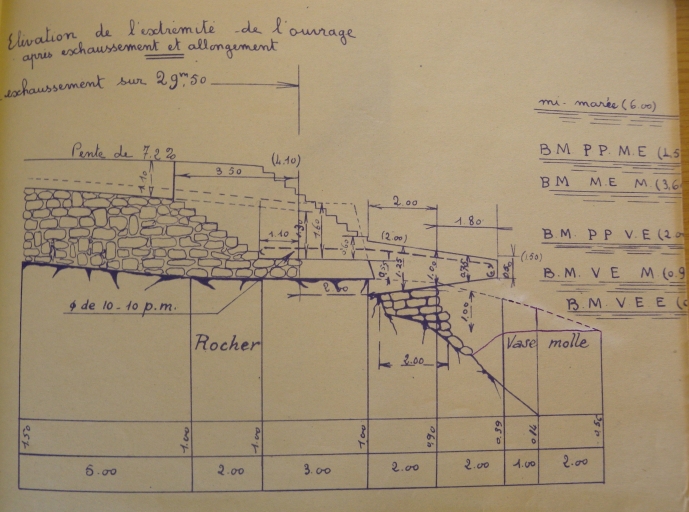 Elévation de l'extrémité de l'ouvrage
après exhaussement et allongement
exhaussement sur 29m,50
mi-marée (6.00)
Pente de 7.2 %
(4.10)
B M. PP. M.E (4.5
3.50
B M M.E M (3.6
2.00
1.80
1.10
1.60
(2.00)
B M. PP V E (2.0
(1.50)
1.25
1.00
B.M. V E M (0.9
2.00
φ de 10-10 p.m.
1.00
B M. V E E (
Rocher
Vase molle
2.00
1.50
1.00
1.00
1.00
0.90
0.39
0.16
0.56
6.00
2.00
3.00
2.00
2.00
1.00
2.00